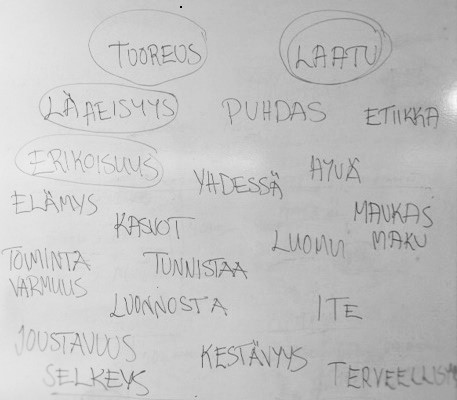 TUOREUS LAATU
LÄHEISYYS PUHDAS ETIIKKA
ERIKOISUUS YHDESSÄ HYVÄ
ELÄMYS KASVOT MAUKAS
LUOMU MAKU
TOIMINTA TUNNISTAA
VARMUUS LUONNOSTA ITE
JOUSTAVUUS KESTÄVYYS
SELKEYS TERVEELLISYY